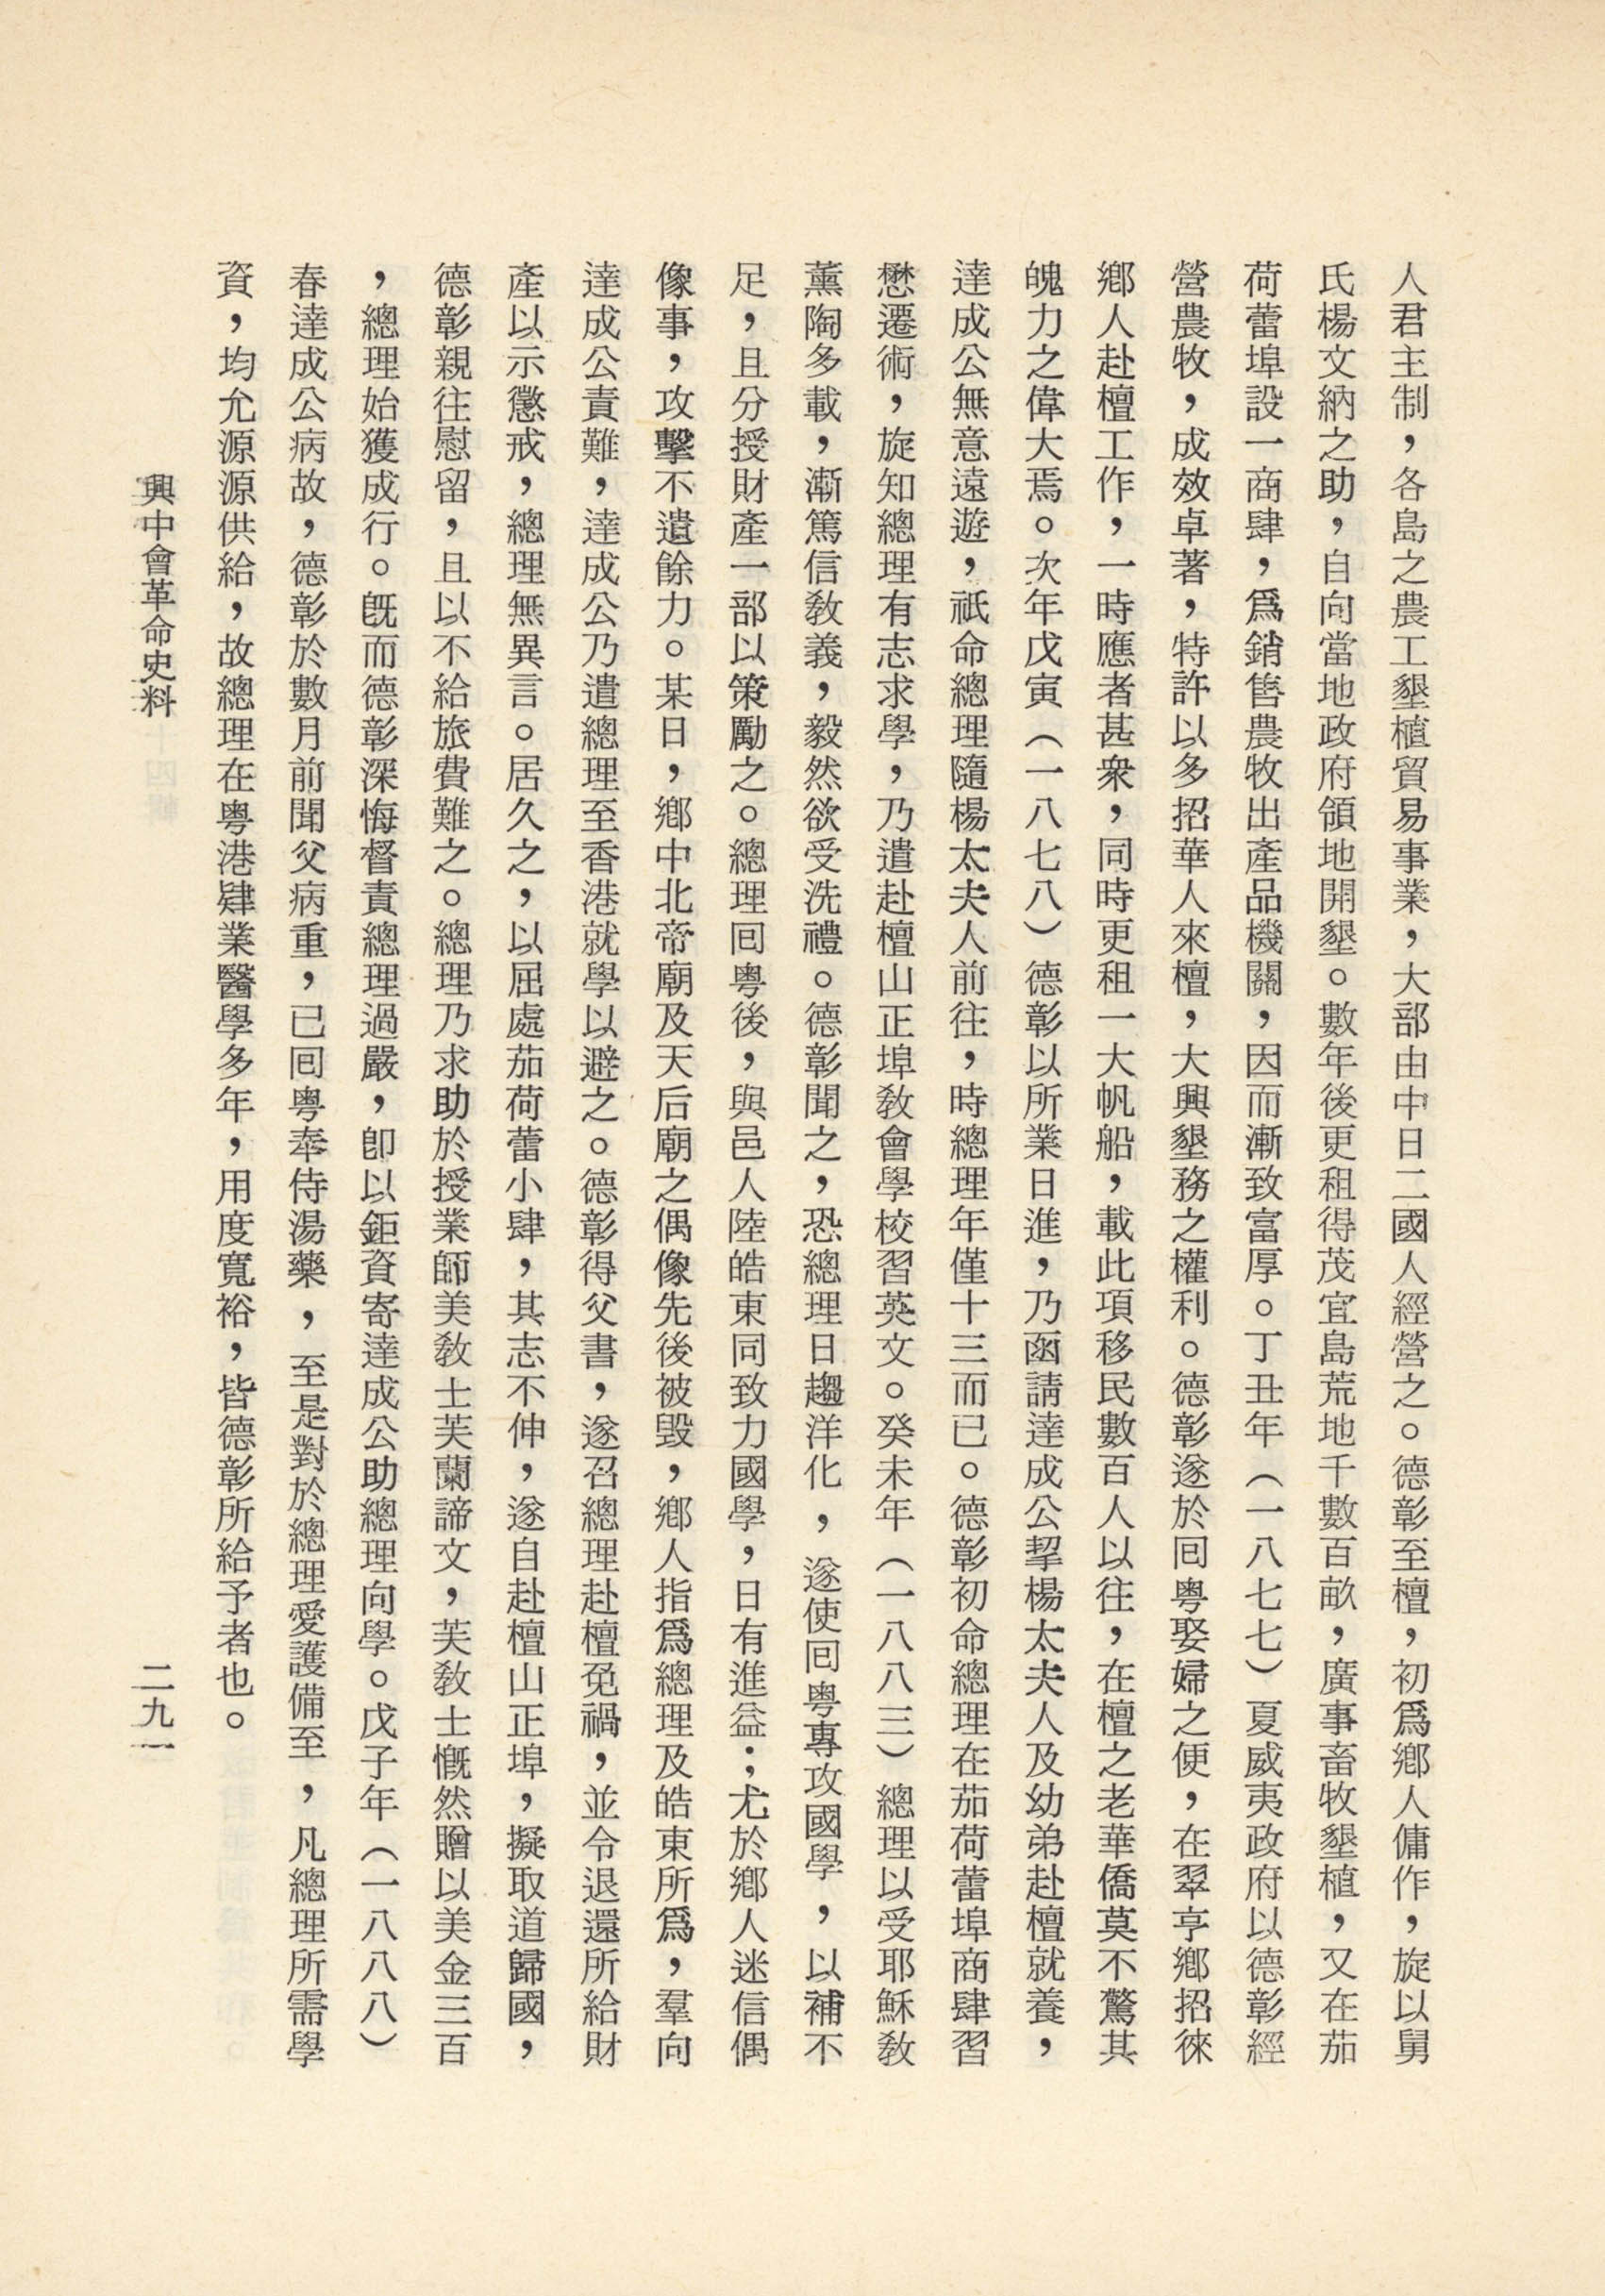 人君主制，各島之農工墾植貿易事業，大部由中日二國人經營之。德彰至檀，初爲鄉人傭作，旋以舅
氏楊文納之助，自向當地政府領地開墾。數年後更租得茂宜島荒地千數百畝，廣事畜牧墾植，又在茄
荷蕾埠設一商肆，爲銷售農牧出產品機關，因而漸致富厚。丁丑年（一八七七）夏威夷政府以德彰經
營農牧，成效卓著，特許以多招華人來檀，大興墾務之權利。德彰遂於囘粵娶婦之便，在翠亨鄉招徠
鄉人赴檀工作，一時應者甚衆，同時更租一大帆船，載此項移民數百人以往，在檀之老華僑莫不驚其
魄力之偉大焉。次年戊寅（一八七八）德彰以所業日進，乃函請達成公挈楊太夫人及幼弟赴檀就養，
達成公無意遠遊，祇命總理隨楊太夫人前往，時總理年僅十三而已。德彰初命總理在茄荷蕾埠商肆習
懋遷術，旋知總理有志求學，乃遣赴檀山正埠敎會學校習英文。癸未年（一八八三）總理以受耶穌敎
薰陶多載，漸篤信敎義，毅然欲受洗禮。德彰聞之，恐總理日趨洋化，遂使囘粵專攻國學，以補不
足，且分授財產一部以策勵之。總理囘粵後，與邑人陸皓東同致力國學，日有進益；尤於鄉人迷信偶
像事，攻擊不遺餘力。某日，鄉中北帝廟及天后廟之偶像先後被毀，鄉人指爲總理及皓東所爲，羣向
達成公責難，達成公乃遣總理至香港就學以避之。德彰得父書，遂召總理赴檀免禍，並令退還所給財
產以示懲戒，總理無異言。居久之，以屈處茄荷蕾小肆，其志不伸，遂自赴檀山正埠，擬取道歸國，
德彰親往慰留，且以不給旅費難之。總理乃求助於授業師美敎士芙蘭諦文，芙敎士慨然贈以美金三百
，總理始獲成行。旣而德彰深悔督責總理過嚴，卽以鉅資寄達成公助總理向學。戊子年（一八八八）
春達成公病故，德彰於數月前聞父病重，已囘粵奉侍湯藥，至是對於總理愛護備至，凡總理所需學
資，均允源源供給，故總理在粵港肄業醫學多年，用度寬裕，皆德彰所給予者也。
興中會革命史料
二九一